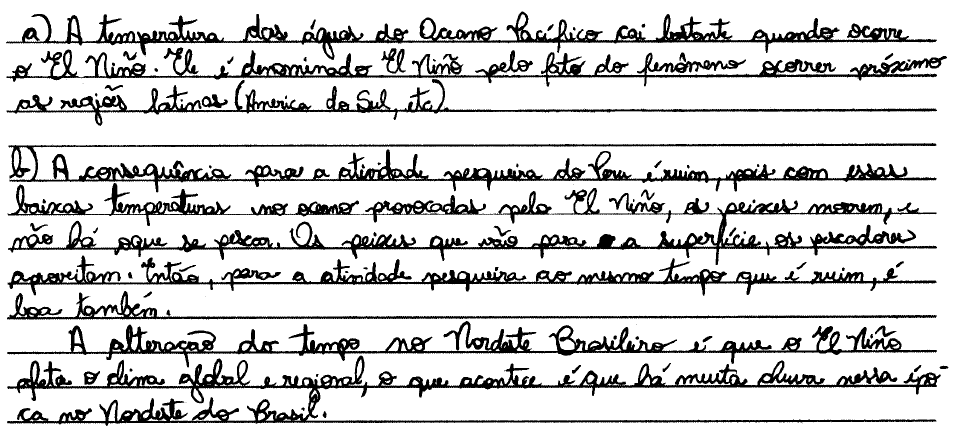 a) A temperatura das águas do Oceano Pacífico cai bastante quando ocorre
o El Niño. Ele é denominado El Niño pelo fato do fenômeno ocorrer próximo
as regiões latinas (America do Sul, etc).
b) A consequência para a atividade pesqueira do Peru é ruim, pois com essas
baixas temperaturas no oceano provocadas pelo El Niño, os peixes morrem, e
não há oque se pescar. Os peixes que vão para a superfície, os pescadores
aproveitam. Então, para a atividade pesqueira ao mesmo tempo que é ruim, é
boa também.
A alteração do tempo no Nordeste Brasileiro é que o El Niño
afeta o clima global e regional, o que acontece é que há muita chuva nessa épo-
ca no Nordeste do Brasil.